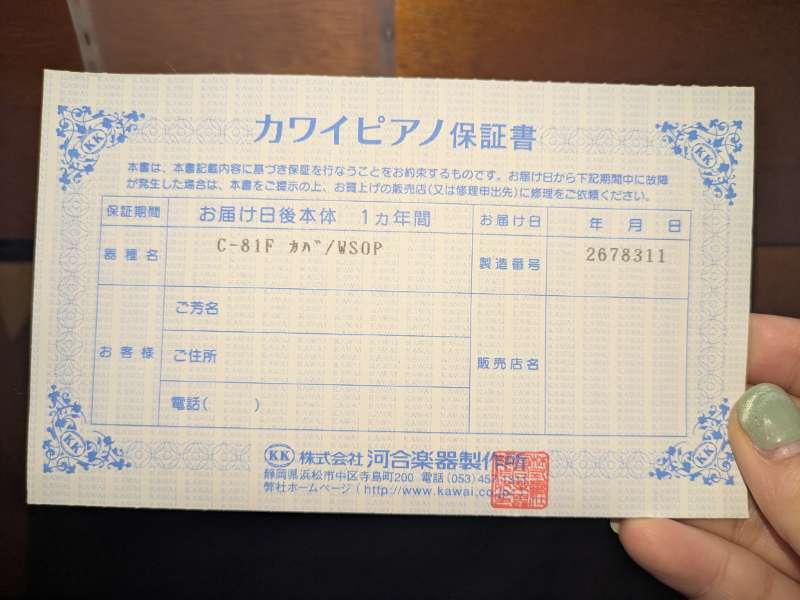 カワイピアノ保証書
本書は、本書記載内容に基づき保証を行なうことをお約束するものです。お届け日から下記期間中に故障
が発生した場合は、本書をご提示の上、お買上げの販売店(又は修理申出先)に修理をご依頼ください。
保証期間 お届け日後本体 1ヵ年間 お届け日 年 月 日
器種名 C-81F カバ/WSOP 製造番号 2678311
お客様 ご芳名
ご住所
電話( )
販売店名
KK 株式会社 河合楽器製作所
静岡県浜松市中区寺島町200 電話(053)457
弊社ホームページ(http://www.kawai.co.jp